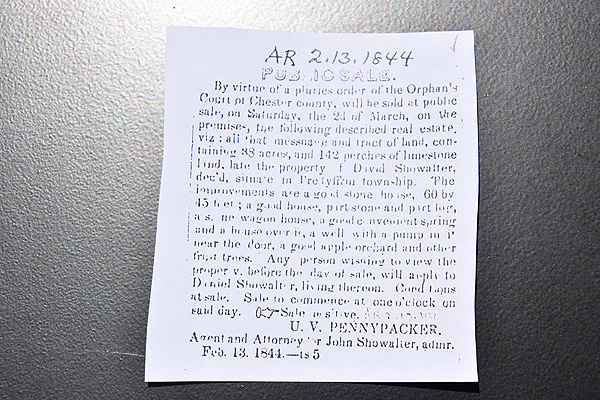 AR 2.13.1844
PUBLIC SALE.
By virtue of a pluries order of the Orphan's
Court of Chester county, will be sold at public
sale, on Saturday, the 2d of March, on the
premises, the following described real estate,
viz: all that messuage and tract of land, con-
taining 38 acres, and 142 perches of limestone
land, late the property of David Showalter,
dec'd, situate in Tredyffrin township. The
improvements are a good stone house, 60 by
45 feet; a good house, part stone and part log,
a stone wagon house, a good convenient spring
and a house over it, a well with a pump in it
near the door, a good apple orchard and other
fruit trees. Any person wishing to view the
property, before the day of sale, will apply to
Daniel Showalter, living thereon. Conditions
at sale. Sale to commence at one o'clock on
said day. ☞Sale positive.
U. V. PENNYPACKER,
Agent and Attorney for John Showalter, admr.
Feb. 13. 1844.—ts5